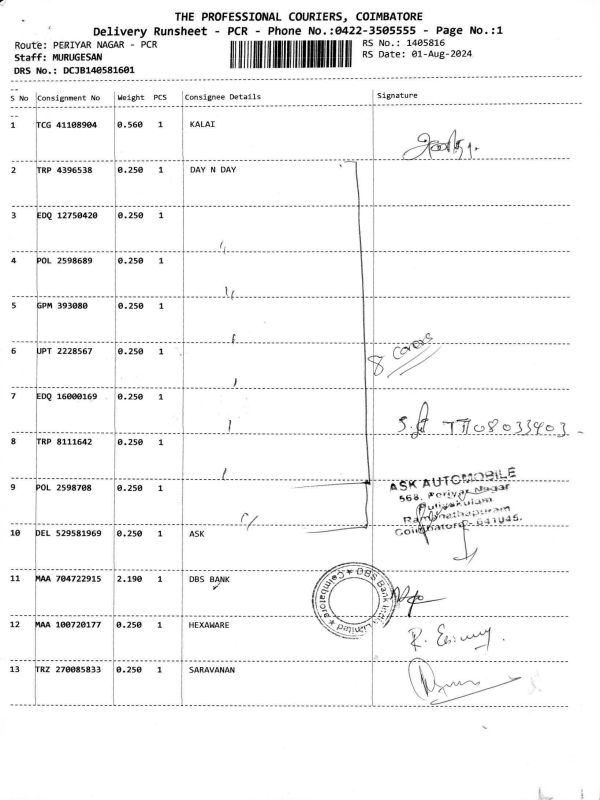 THE PROFESSIONAL COURIERS, COIMBATORE
Delivery Runsheet - PCR - Phone No.:0422-3505555 - Page No.:1
Route: PERIYAR NAGAR - PCR RS No.: 1405816
Staff: MURUGESAN RS Date: 01-Aug-2024
DRS No.: DCJB140581601
S No Consignment No Weight PCS Consignee Details Signature
1 TCG 41108904 0.560 1 KALAI
2 TRP 4396538 0.250 1 DAY N DAY
3 EDQ 12750420 0.250 1
4 POL 2598689 0.250 1
5 GPM 393080 0.250 1
6 UPT 2228567 0.250 1
8 covers
7 EDQ 16000169 0.250 1
7708033403
8 TRP 8111642 0.250 1
9 POL 2598708 0.250 1
ASK AUTOMOBILE
568, Periyar Nagar
Puliyakulam
Ramanathapuram
Coimbatore - 641045.
10 DEL 529581969 0.250 1 ASK
11 MAA 704722915 2.190 1 DBS BANK
DBS Bank India Limited * Coimbatore *
12 MAA 100720177 0.250 1 HEXAWARE
13 TRZ 270085833 0.250 1 SARAVANAN